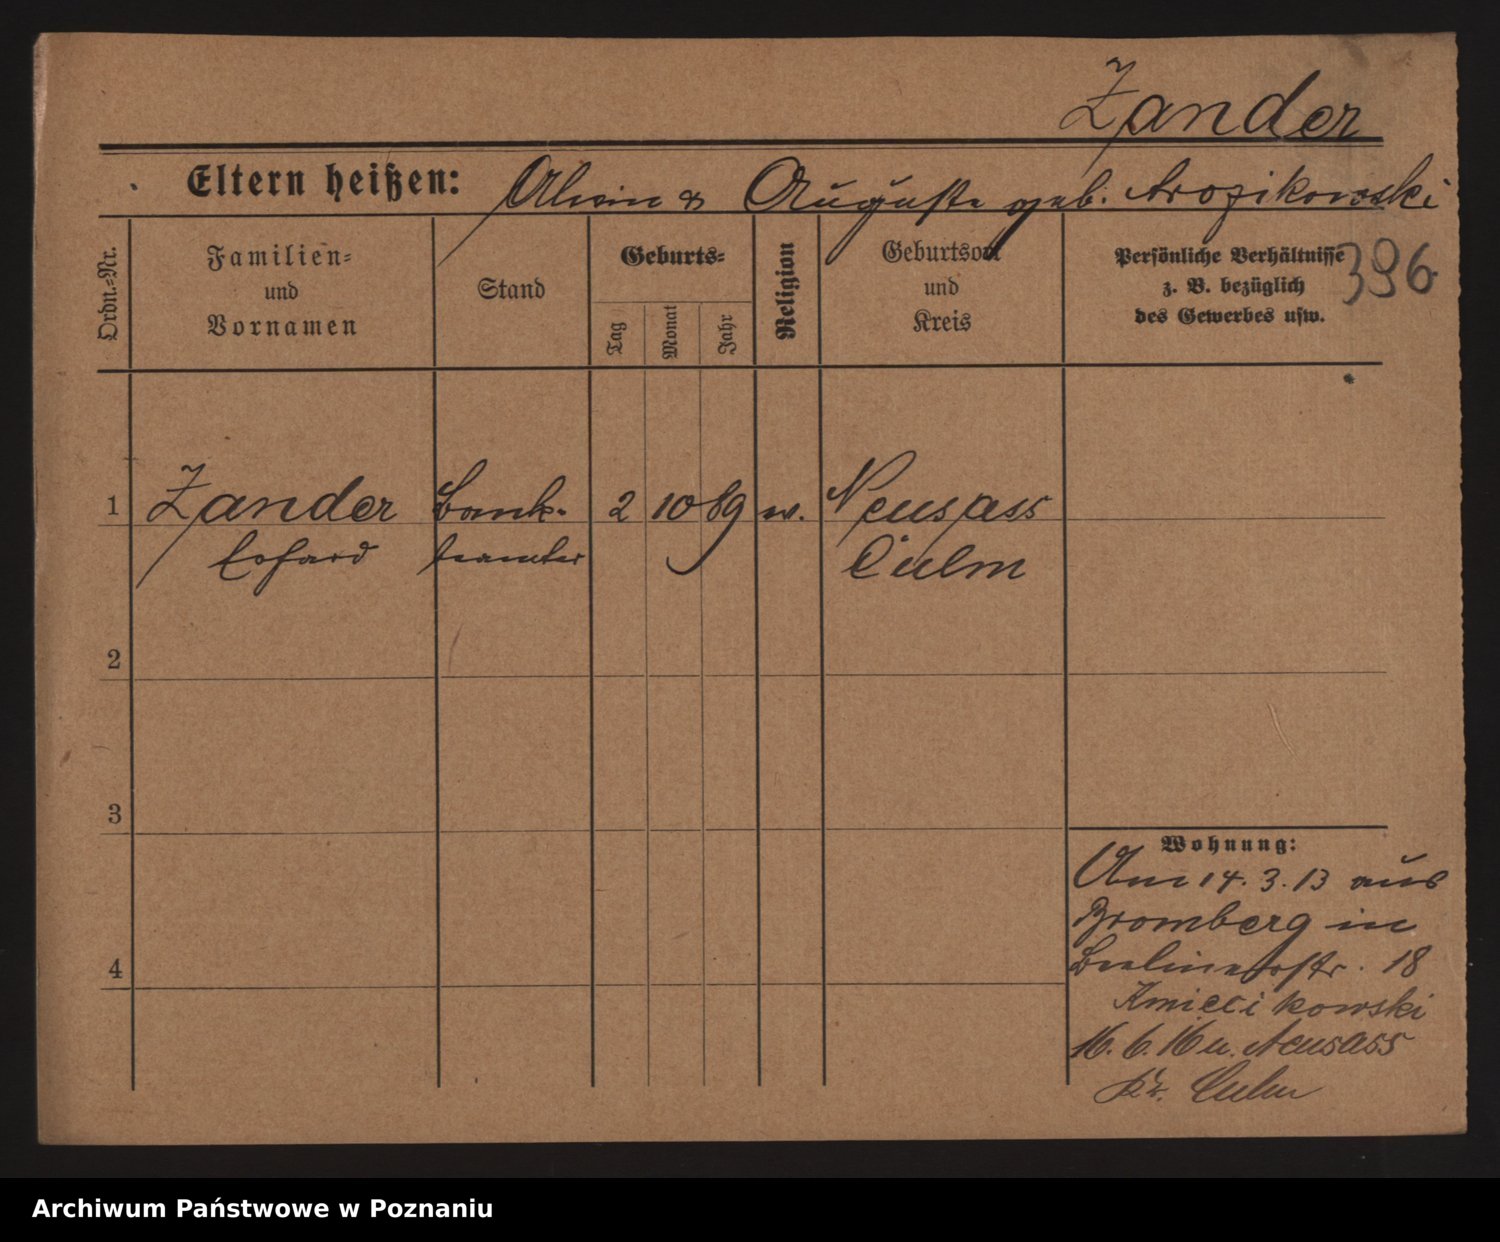 Zander
Eltern heißen: Alwin & Auguste geb.
Ordn.-Nr.
Familien-
und
Vornamen
Stand
Geburts-
Tag
Monat
Jahr
Religion
Geburtsort
und
Kreis
Persönliche Verhältnisse
z. B. bezüglich
des Gewerbes usw.
396
1 Zander Bank- 2 10 89 Neusass
Erhard beamter Culm
2
3
4
Wohnung:
Am 14.3.13 aus
Bromberg in
Berlinerstr. 18
Kmiecikowski
16.6.16 n. Neusass
Kr. Culm
Archiwum Państwowe w Poznaniu